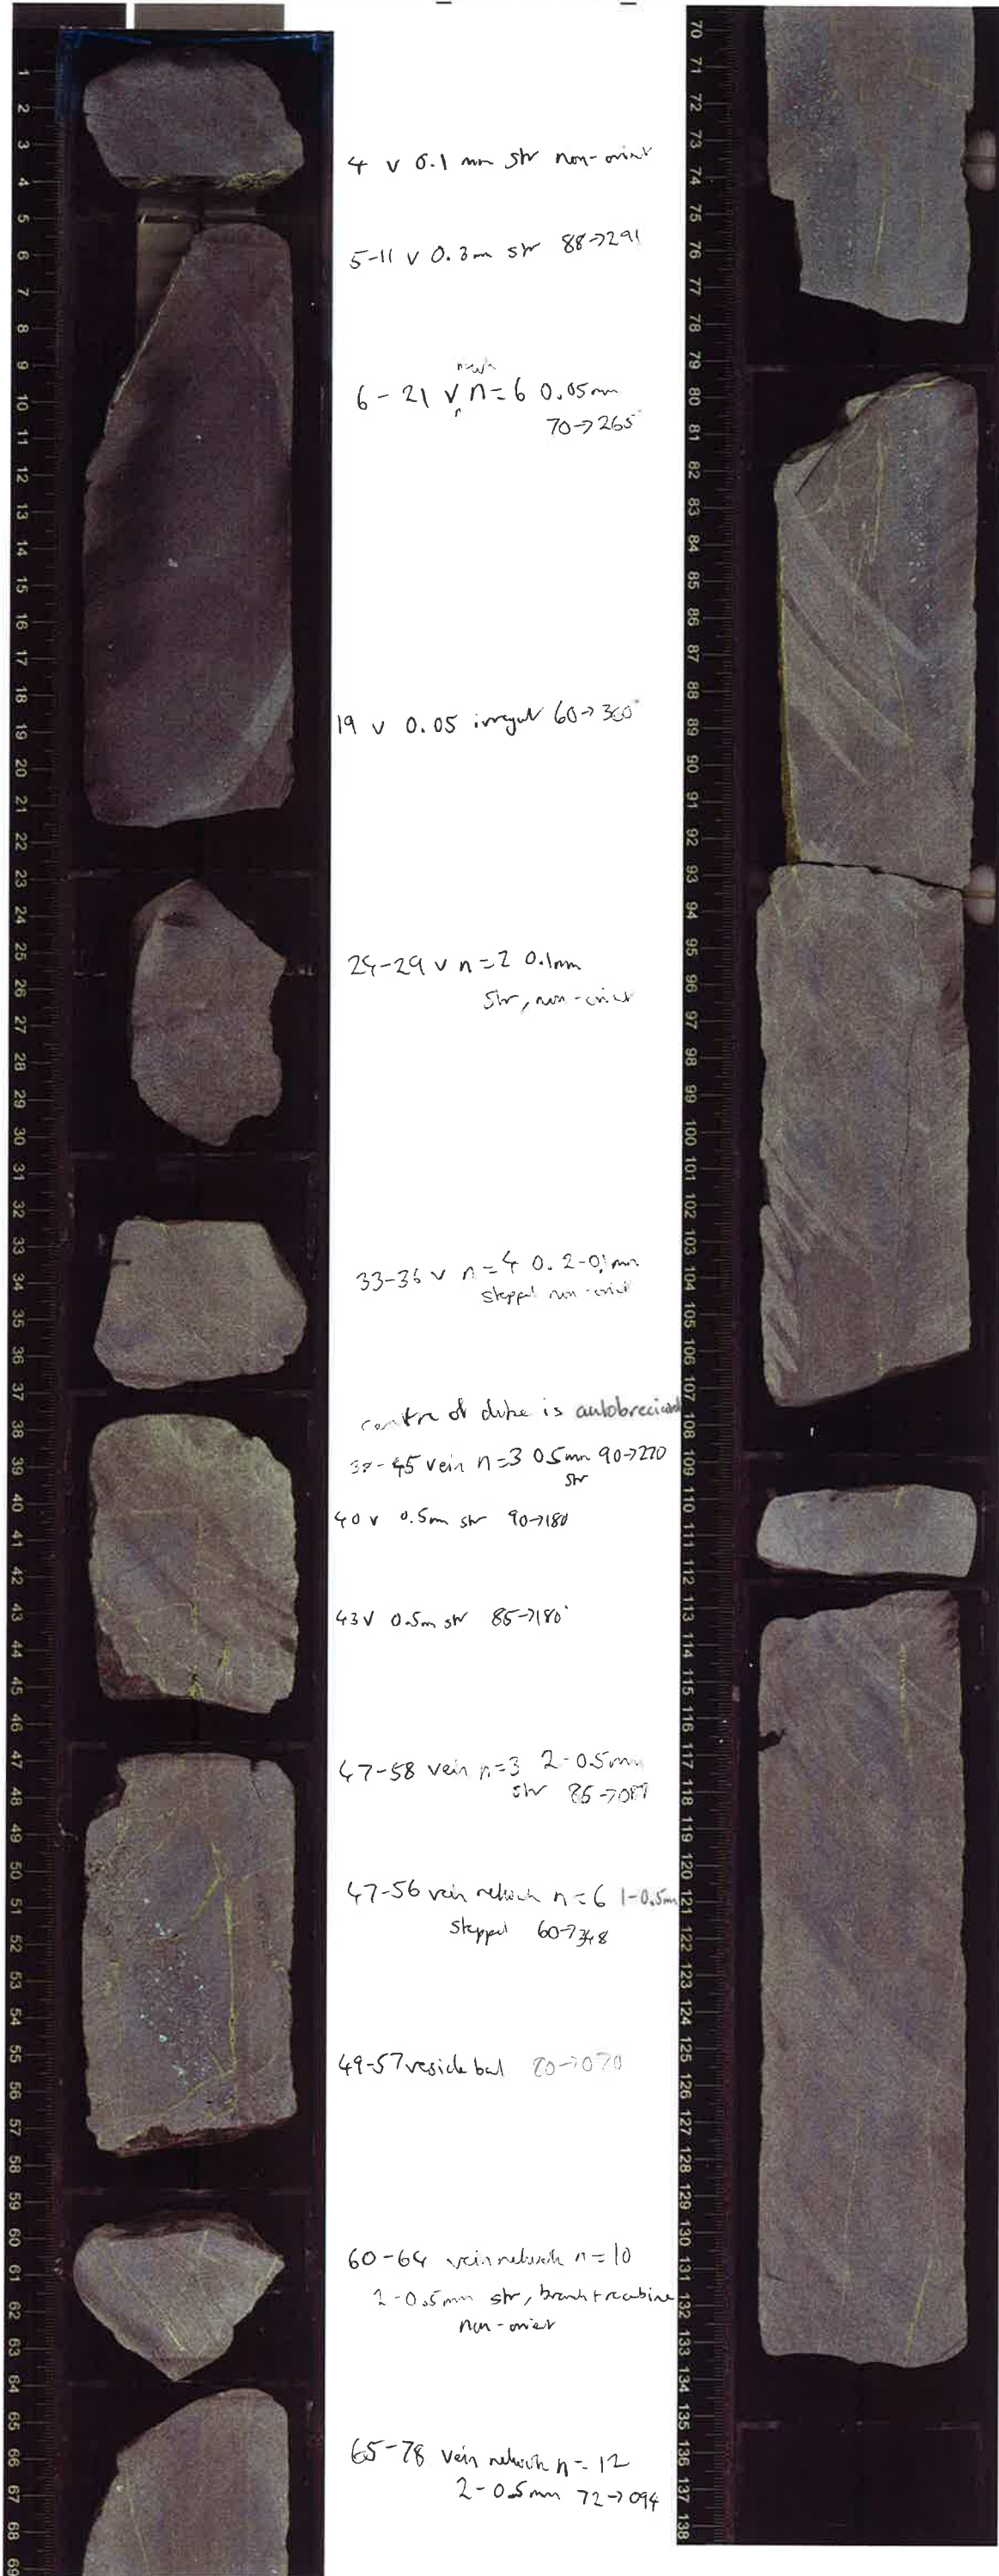 1
2
3
4
5
6
7
8
9
10
11
12
13
14
15
16
17
18
19
20
21
22
23
24
25
26
27
28
29
30
31
32
33
34
35
36
37
38
39
40
41
42
43
44
45
46
47
48
49
50
51
52
53
54
55
56
57
58
59
60
61
62
63
64
65
66
67
68
69
4 v 0.1 mm str non-orient
5-11 v 0.3mm str 88->291
6-21 v n=6 0.05mm
70->265°
19 v 0.05 irregul 60->360°
24-29 v n=2 0.1mm
str, non-orient
33-36 v n=4 0.2-0.1mm
stepped non-orient
centre of dike is autobrecciated
38-45 vein n=3 0.5mm 90->270
str
40 v 0.5mm str 90->180
43 v 0.5mm str 85->180°
47-58 vein n=3 2-0.5mm
str 85->089
47-56 vein network n=6 1-0.5mm
stepped 60->348
49-57 vesicle band 80->070
60-64 vein network n=10
2-0.5mm str, branch+recombine
non-orient
65-78 vein network n=12
2-0.5mm 72->094
70
71
72
73
74
75
76
77
78
79
80
81
82
83
84
85
86
87
88
89
90
91
92
93
94
95
96
97
98
99
100
101
102
103
104
105
106
107
108
109
110
111
112
113
114
115
116
117
118
119
120
121
122
123
124
125
126
127
128
129
130
131
132
133
134
135
136
137
138